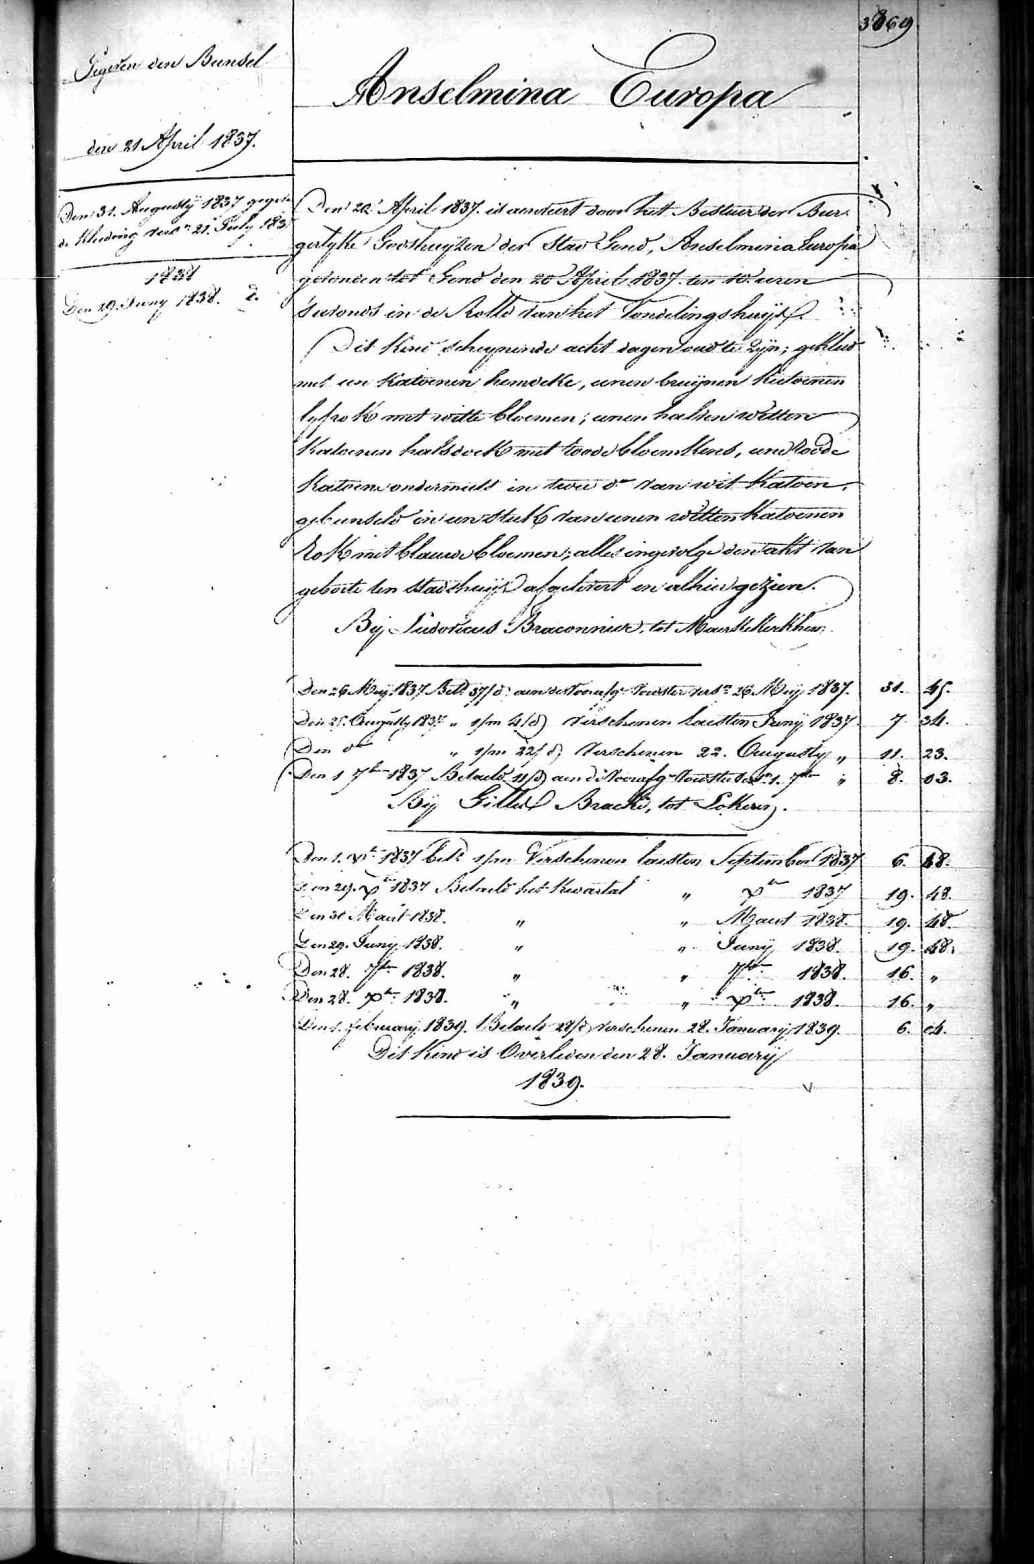 3869
Gegeven den Bunsel
den 21 April 1837.
Den 31. Augusty 1837 gegeven
de Kleeding versn 21. July 1837
1838
Den 29. Juny 1838. d.
Anselmina Europa
Den 20 April 1837. is aenveert door het Bestuer der Bur-
gerlyke Godshuyzen der Stad Gend, Anselmina Europa
gevonden tot Gend den 20 April 1837. ten 10. uren
s'avonds in de Rolle van het Vondelingshuys.
Dit Kind scheynende acht dagen oud te zyn; gekleed
met een Katoenen hemdeke, eenen bruynen Katoenen
lyfrok met witte bloemen; eenen halven witten
Katoenen halsdoek met roode bloemkens, eene roode
Katoene ondermuts in twee do van wit Katoen,
gebunseld in een stuk van eenen witten Katoenen
Rok met blauwe bloemen; alles ingevolge den akt van
geboorte ten stadhuyse afgeleverd en alhier gezien.
By Ludovicus Braconnier, tot Maerkekerkhem.
Den 26 Mey 1837 Beld 37/d: aen de voedster versn 26. Mey 1837. 31. 45.
Den 25. Augusty 1837 " 1/m 4/d) verschenen laesten Juny 1837 7. 34.
Den do " 1/m 22/d) verschenen 22. Augusty " 11. 23.
Den 1 7ber 1837 Betaeld 11/d) aen de voedster versn 1. 7ber " 8. 03.
By Gilles Bracke, tot Lokeren.
Den 1. xber 1837 beld 1/m Verschenen laesten September 1837 6. 48.
Den 29. xber 1837 Betaeld het kwartal " xber 1837 19. 48.
Den 31 Maert 1838. " " Maert 1838. 19. 48.
Den 29. Juny 1838. " " Juny 1838. 19. 48.
Den 28. 7ber 1838. " " 7ber 1838. 16. "
Den 28. xber 1838. " " xber 1838. 16. "
Den 1. february 1839. Betaeld 28/d) verschenen 28. January 1839. 6. 04.
Dit kind is Overleden den 28. January
1839.